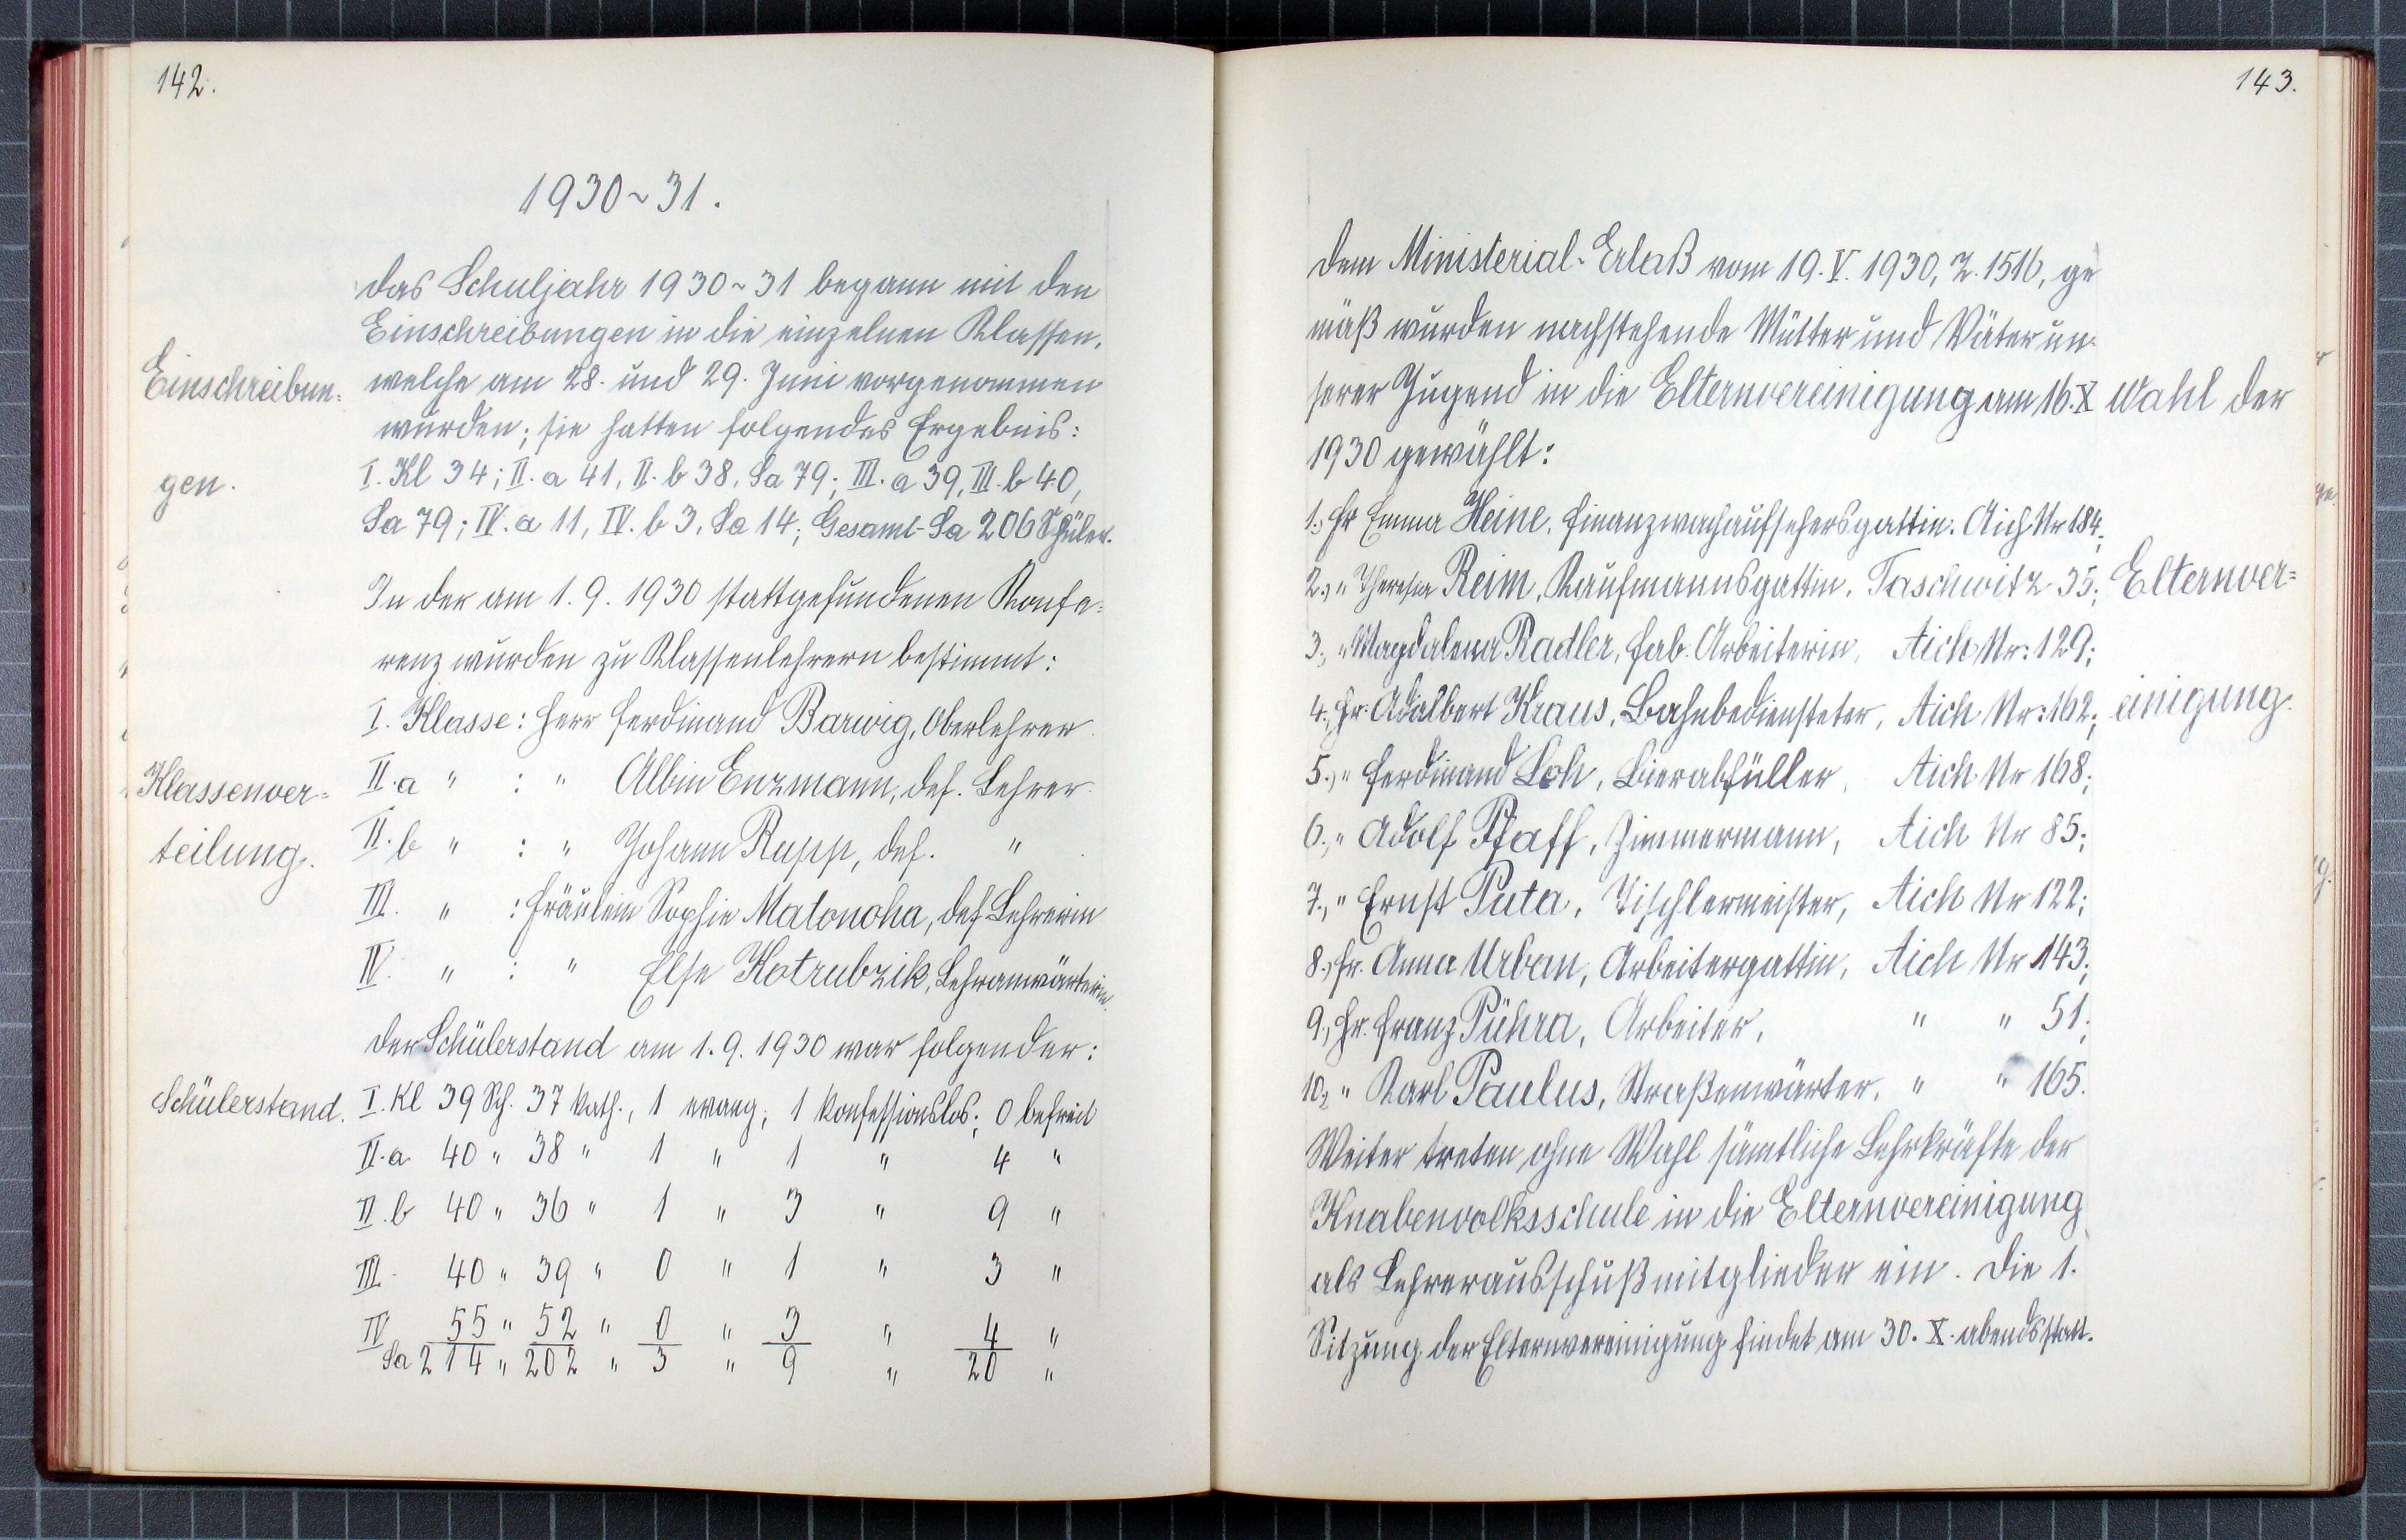 142.
1930~31.
Das Schuljahr 1930~31 begann mit den
Einschreibungen in die einzelnen Klassen,
Einschreibun= welche am 28. und 29. Juni vorgenommen
wurden; sie hatten folgendes Ergebnis:
gen. I. Kl 34; II. a 41, II. b 38, Sa 79; III. a 39, III. b 40,
Sa 79; IV. a 11, IV. b 3, Sa 14; Gesamt-Sa 206 Schüler.
In der am 1. 9. 1930 stattgefundenen Konfe=
renz wurden zu Klassenlehrern bestimmt:
I. Klasse: Herr Ferdinand Barwig, Oberlehrer.
Klassenver= II. a " : " Albin Enzmann, def. Lehrer.
teilung. II. b " : " Johann Rupp, def. " .
III. " : Fräulein Sophie Matonoha, def. Lehrerin
IV. " : " Else Kotrubzik, Lehramwärterin.
Der Schülerstand am 1. 9. 1930 war folgender:
Schülerstand. I. Kl 39 Sch. 37 kath., 1 evang, 1 konfessionslos; 0 befreit
II. a 40 " 38 " 1 " 1 " 4 "
II. b 40 " 36 " 1 " 3 " 9 "
III. 40 " 39 " 0 " 1 " 3 "
IV 55 " 52 " 0 " 3 " 4 "
Sa 214 " 202 " 3 " 9 " 20 "
143.
Dem Ministerial-Erlaß vom 19. V. 1930, Z. 1516, ge
mäß wurden nachstehende Mütter und Väter un-
serer Jugend in die Elternvereinigung am 16. X Wahl der
1930 gewählt:
1., Fr Emma Heine, Finanzwachaufsehersgattin. Aich Nr 184;
2., " Theresia Reim, Kaufmannsgattin, Taschwitz 35; Elternver=
3., " Magdalena Radler, Fab. Arbeiterin, Aich Nr: 129;
4., Hr. Adalbert Kraus, Bahnbediensteter, Aich Nr: 162; einigung.
5., " Ferdinand Loh, Bierabfüller, Aich Nr 168;
6., " Adolf Pfaff, Zimmermann, Aich Nr 85;
7., " Ernst Puta, Tischlermeister, Aich Nr 122;
8., Fr. Anna Urban, Arbeitergattin, Aich Nr 143;
9., Hr. Franz Pühra, Arbeiter, " " 51;
10., " Karl Paulus, Straßenwärter, " " 165.
Weiter treten ohne Wahl sämtliche Lehrkräfte der
Knabenvolksschule in die Elternvereinigung
als Lehrerausschußmitglieder ein. Die 1.
Sitzung der Elternvereinigung findet am 30. X. abends statt.